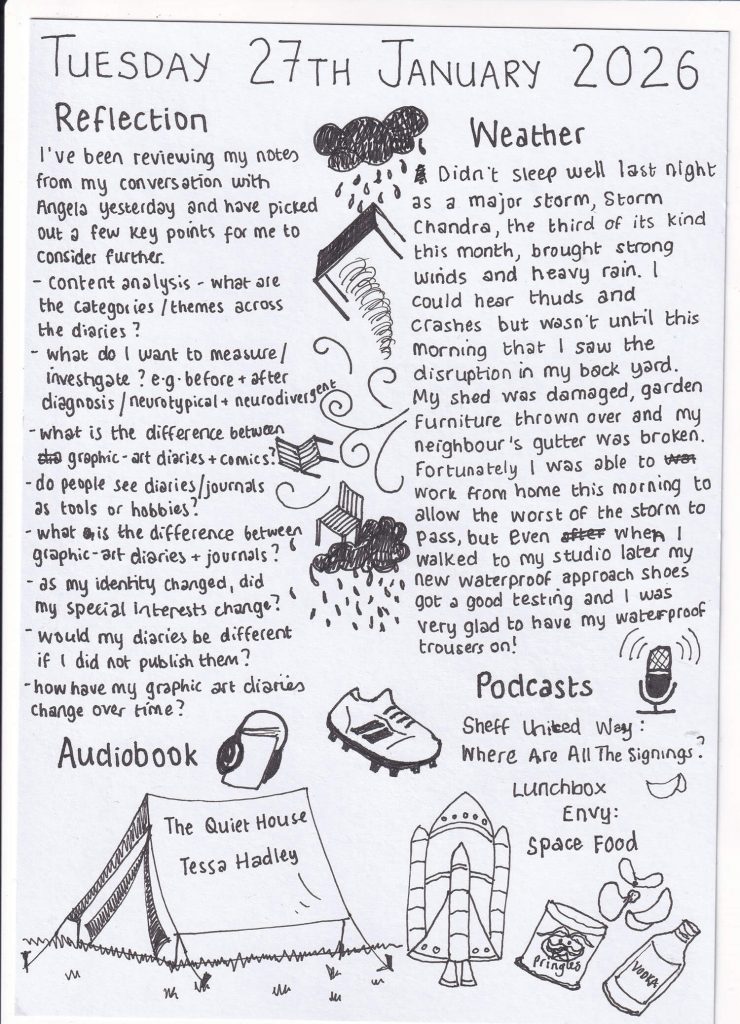 TUESDAY 27TH JANUARY 2026
Reflection
I've been reviewing my notes
from my conversation with
Angela yesterday and have picked
out a few key points for me to
consider further.
- content analysis - what are
the categories/themes across
the diaries?
- what do I want to measure/
investigate? e.g. before + after
diagnosis/neurotypical + neurodivergent
- what is the difference between
graphic-art diaries + comics?
- do people see diaries/journals
as tools or hobbies?
- what is the difference between
graphic-art diaries + journals?
- as my identity changed, did
my special interests change?
- would my diaries be different
if I did not publish them?
- how have my graphic art diaries
change over time?
Weather
Didn't sleep well last night
as a major storm, Storm
Chandra, the third of its kind
this month, brought strong
winds and heavy rain. I
could hear thuds and
crashes but wasn't until this
morning that I saw the
disruption in my back yard.
My shed was damaged, garden
furniture thrown over and my
neighbour's gutter was broken.
Fortunately I was able to was
work from home this morning to
allow the worst of the storm to
pass, but even after when I
walked to my studio later my
new waterproof approach shoes
got a good testing and I was
very glad to have my waterproof
trousers on!
Audiobook
The Quiet House
Tessa Hadley
Podcasts
Sheff United Way:
Where Are All The Signings?
Lunchbox
Envy:
Space Food
Pringles
VODKA